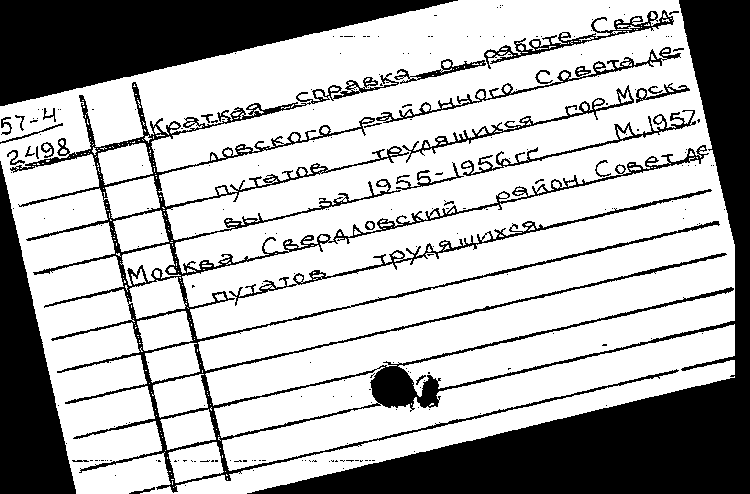 57-4
2498
Краткая справка о работе Сверд-
ловского районного Совета де-
путатов трудящихся гор. Моск-
вы за 1955-1956 гг. М., 1957.
Москва. Свердловский район. Совет де-
путатов трудящихся.